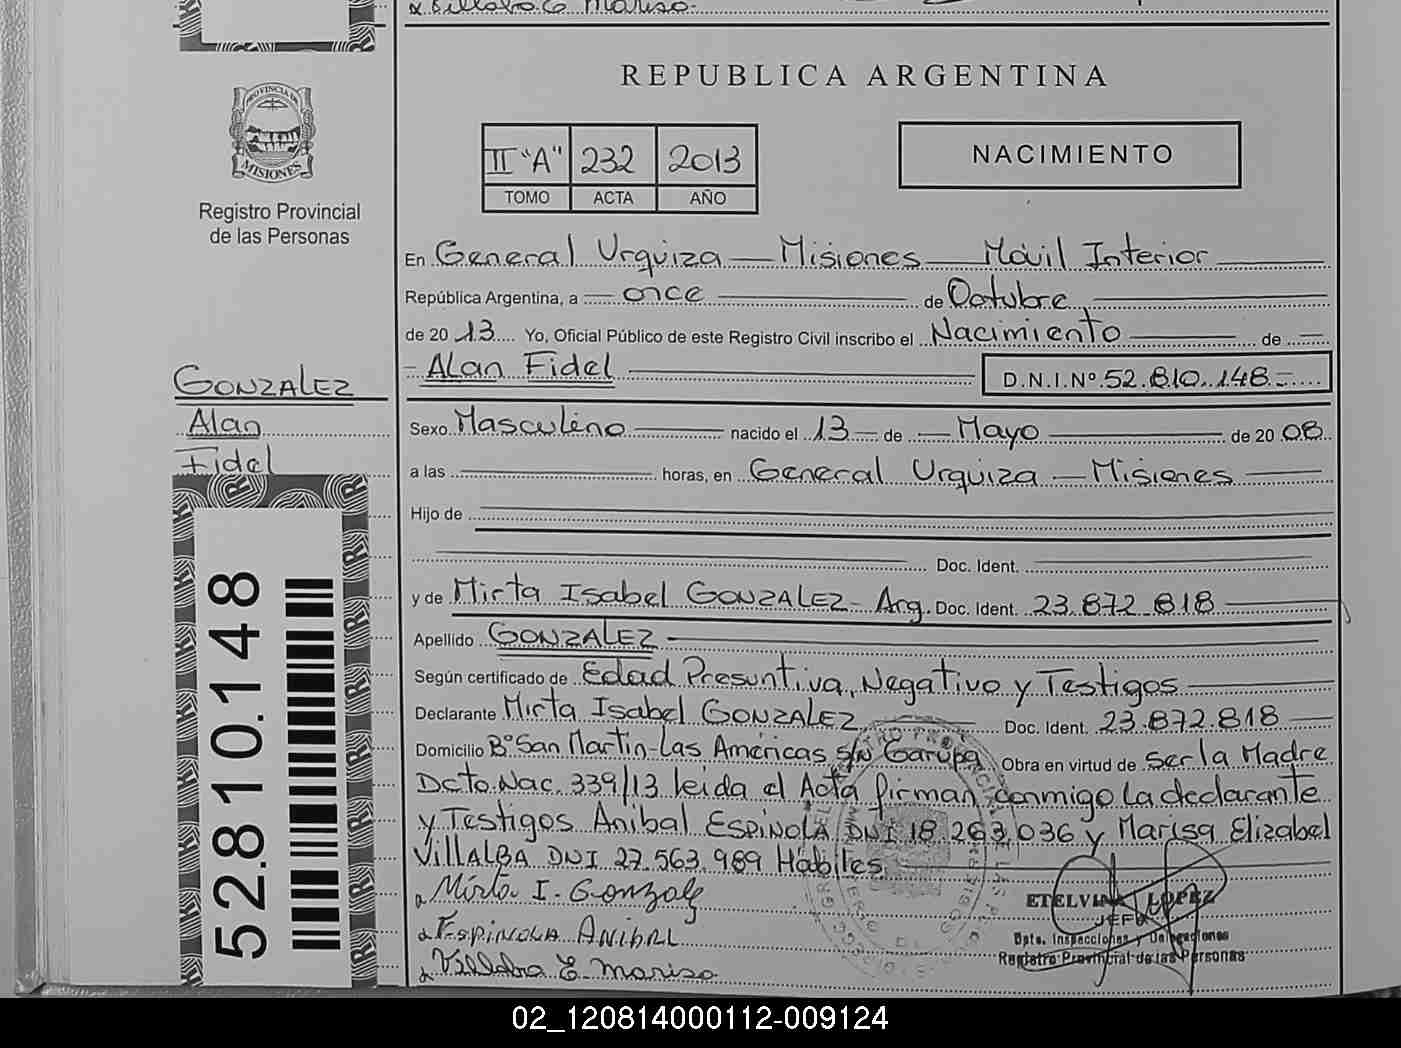 Villalba E Marisa
REPUBLICA ARGENTINA
PROVINCIA DE
MISIONES
Registro Provincial
de las Personas
II "A" 232 2013
TOMO ACTA AÑO
NACIMIENTO
En General Urquiza — Misiones — Móvil Interior
República Argentina, a once de Octubre
de 2013 Yo, Oficial Público de este Registro Civil inscribo el Nacimiento de
- Alan Fidel
D.N.I.Nº 52.810.148-
GONZALEZ
Alan
Fidel
Sexo Masculino nacido el 13 de Mayo de 2008
a las horas, en General Urquiza — Misiones
Hijo de
Doc. Ident.
y de Mirta Isabel GONZALEZ - Arg. Doc. Ident. 23.872.818
Apellido GONZALEZ
Según certificado de Edad Presuntiva, Negativo y Testigos
Declarante Mirta Isabel GONZALEZ Doc. Ident. 23.872.818
Domicilio Bº San Martin-Las Américas s/n Garupa Obra en virtud de ser la Madre
Dcto. Nac. 339/13 leida el Acta firman conmigo la declarante
y Testigos Anibal ESPINOLA DNI 18.263.036 y Marisa Elizabel
VillALBA DNI 27.563.989 Hábiles
Mirta I. Gonzalez
ESPINOLA ANIBAL
Villalba E. Marisa
ETELVINA LOPEZ
JEFE
Dpto. Inspecciones y Delegaciones
Registro Provincial de las Personas
52.810.148
02_120814000112-009124